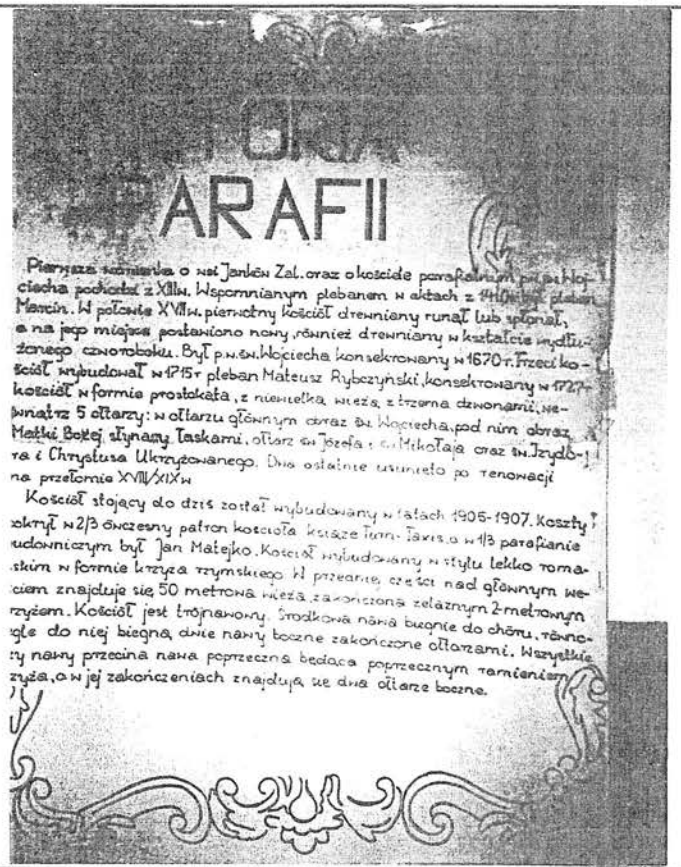 TORIA
PARAFII
Pierwsza wzmianka o wsi Janków Zal. oraz o kościele parafialnym p.w. św. Woj-
ciecha pochodzi z XIIIw. Wspomnianym plebanem w aktach z był pleban
Marcin. W połowie XVIIw. pierwotny kościół drewniany runął lub spłonął,
a na jego miejsce postawiono nowy, również drewniany w kształcie wydłu-
żonego czworoboku. Był p.w. św. Wojciecha konsekrowany w 1670r. Trzeci ko-
ściół wybudował w 1715r pleban Mateusz Rybczyński, konsekrowany w 1727r
kościół w formie prostokąta, z niewielką wieżą, z trzema dzwonami, we-
wnątrz 5 ołtarzy: w ołtarzu głównym obraz św. Wojciecha, pod nim obraz
Matki Bożej słynący łaskami, ołtarz św Józefa, Mikołaja oraz św. Izydo-
ra i Chrystusa Ukrzyżowanego. Dwa ostatnie usunięto po renowacji
na przełomie XVIII/XIXw
Kościół stojący do dziś został wybudowany w latach 1905-1907. Koszty
okrył w 2/3 ówczesny patron kościoła książe Turn-Taxis, a w 1/3 parafianie
udowniczym był Jan Matejko. Kościół wybudowany w stylu lekko roma-
skim w formie krzyża rzymskiego. W przedniej części nad głównym we-
ciem znajduje się 50 metrowa wieża, zakończona żelaznym 2-metrowym
rzyżem. Kościół jest trójnawowy. Środkowa nawa biegnie do chóru, równo-
egle do niej biegną dwie nawy boczne zakończone ołtarzami. Wszystkie
zy nawy przecina nawa poprzeczna będąca poprzecznym ramieniem
rzyża, a w jej zakończeniach znajdują się dwa ołtarze boczne.